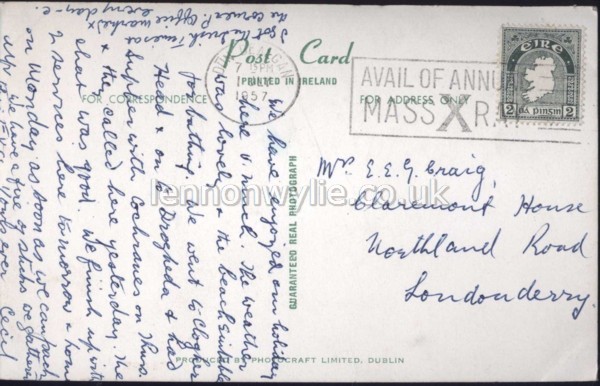 Post Card
PRINTED IN IRELAND
FOR CORRESPONDENCE
FOR ADDRESS ONLY
7 15PM
1957
AVAIL OF ANNU
MASS X RA
EIRE
2 DÁ PINSIN 2
GUARANTEED REAL PHOTOGRAPH
Mrs E.E.G. Craig,
Claremont House
Northland Road
Londonderry.
We have enjoyed our holiday
here v. much. The weather
was lovely & the beach suitable
for bathing. We went to Clogher
Head & on to Drogheda & had
supper with Cochranes on Thurs.
& they called here yesterday. The
chat was good. We finish up with
2 services here tomorrow & home
on Monday as soon as we can pack
up. We have a fire of sticks we gathered
Yours ever
Cecil
I get the Irish Times a
the corner P. Office marked X
every day - C.
PRODUCED BY PHOTOCRAFT LIMITED, DUBLIN
lennonwylie.co.uk